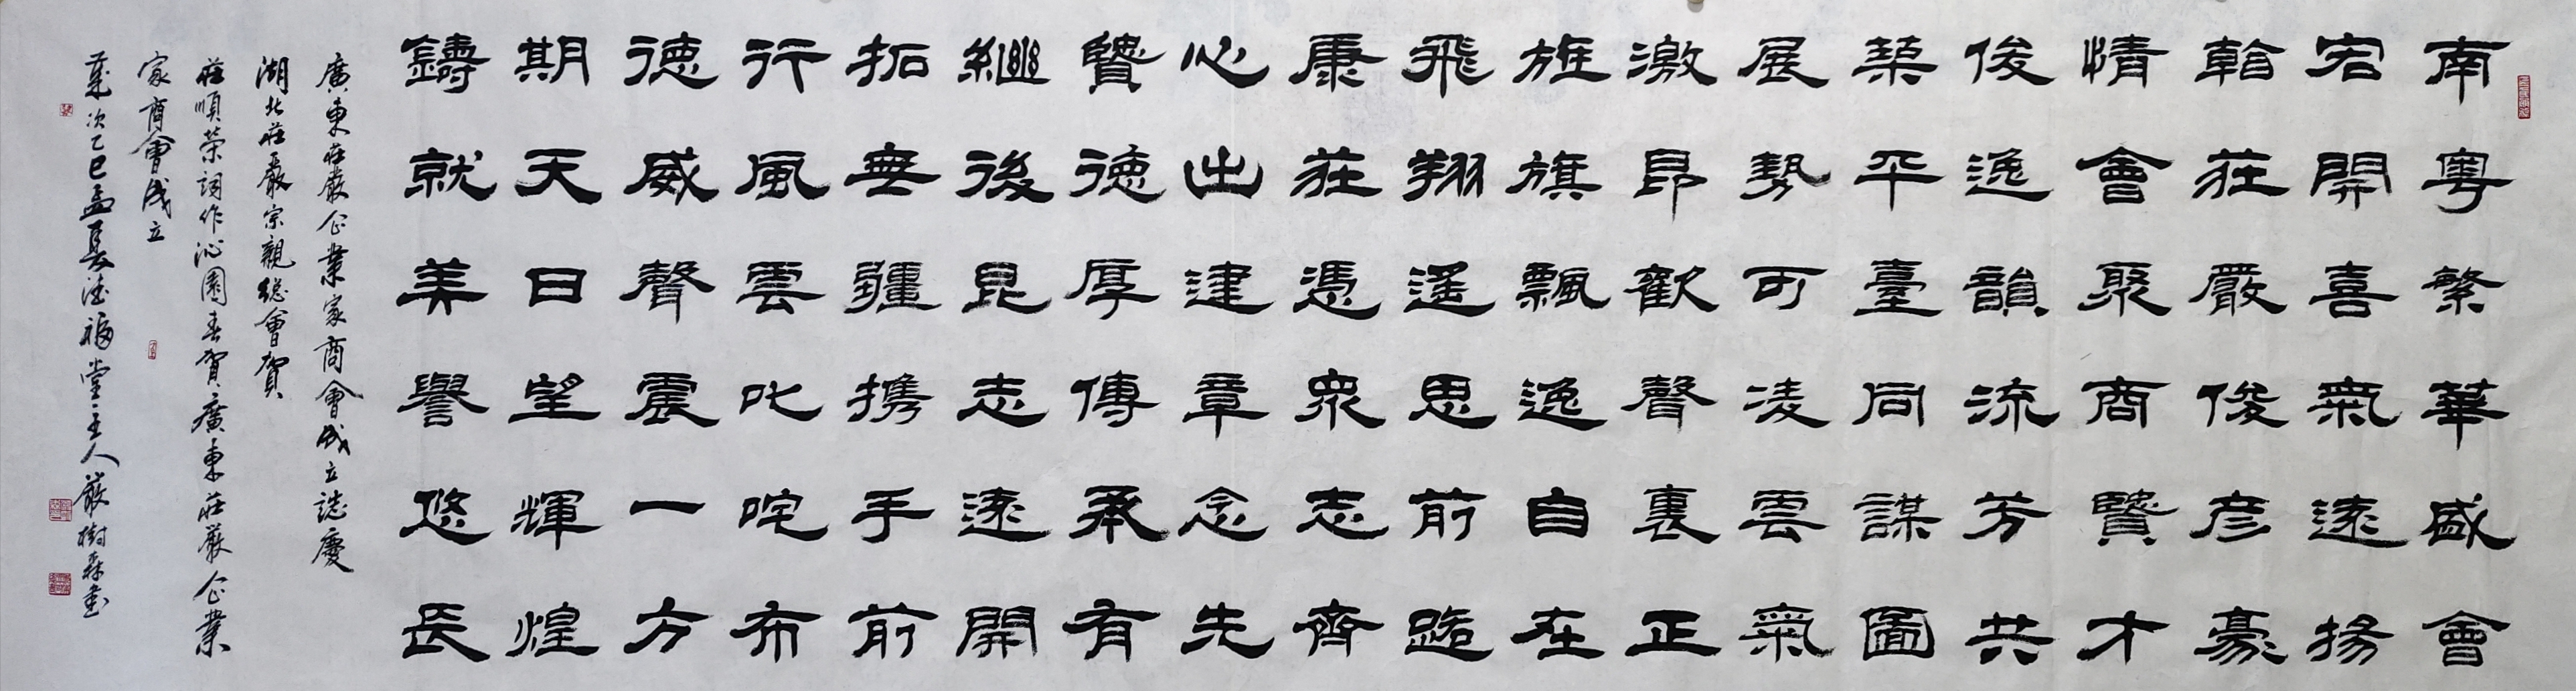 南粵繁華盛會
宏開喜氣遠揚
翰莊嚴俊彥豪
情會聚商賢才
俊逸韻流芳共
築平臺同謀圖
展勢可凌雲氣
激昂歡聲裏正
旌旗飄逸自在
飛翔遥思前路
康莊憑眾志齊
心出建章念先
賢德厚傳承有
繼後昆志遠開
拓無疆携手前
行風雲叱咤布
德威聲震一方
期天日望輝煌
鑄就美譽悠長
廣東莊嚴企業家商會成立誌慶
湖北莊嚴宗親總會賀
莊順榮詞作沁園春賀廣東莊嚴企業
家商會成立
歲次乙巳孟夏德福堂主人嚴樹森書